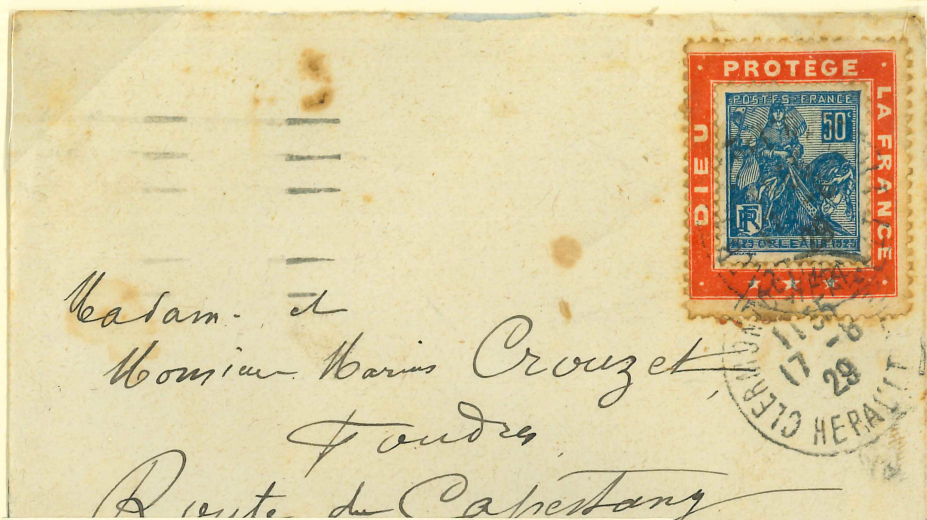 PROTÈGE
DIEU
LA FRANCE
POSTES-FRANCE
50c
RF
1429 ORLEANS 1929
CLERMONT
17
-8
29
HERAULT
Madame et
Monsieur Marius Crouzet
Foudres
Route de Capestang